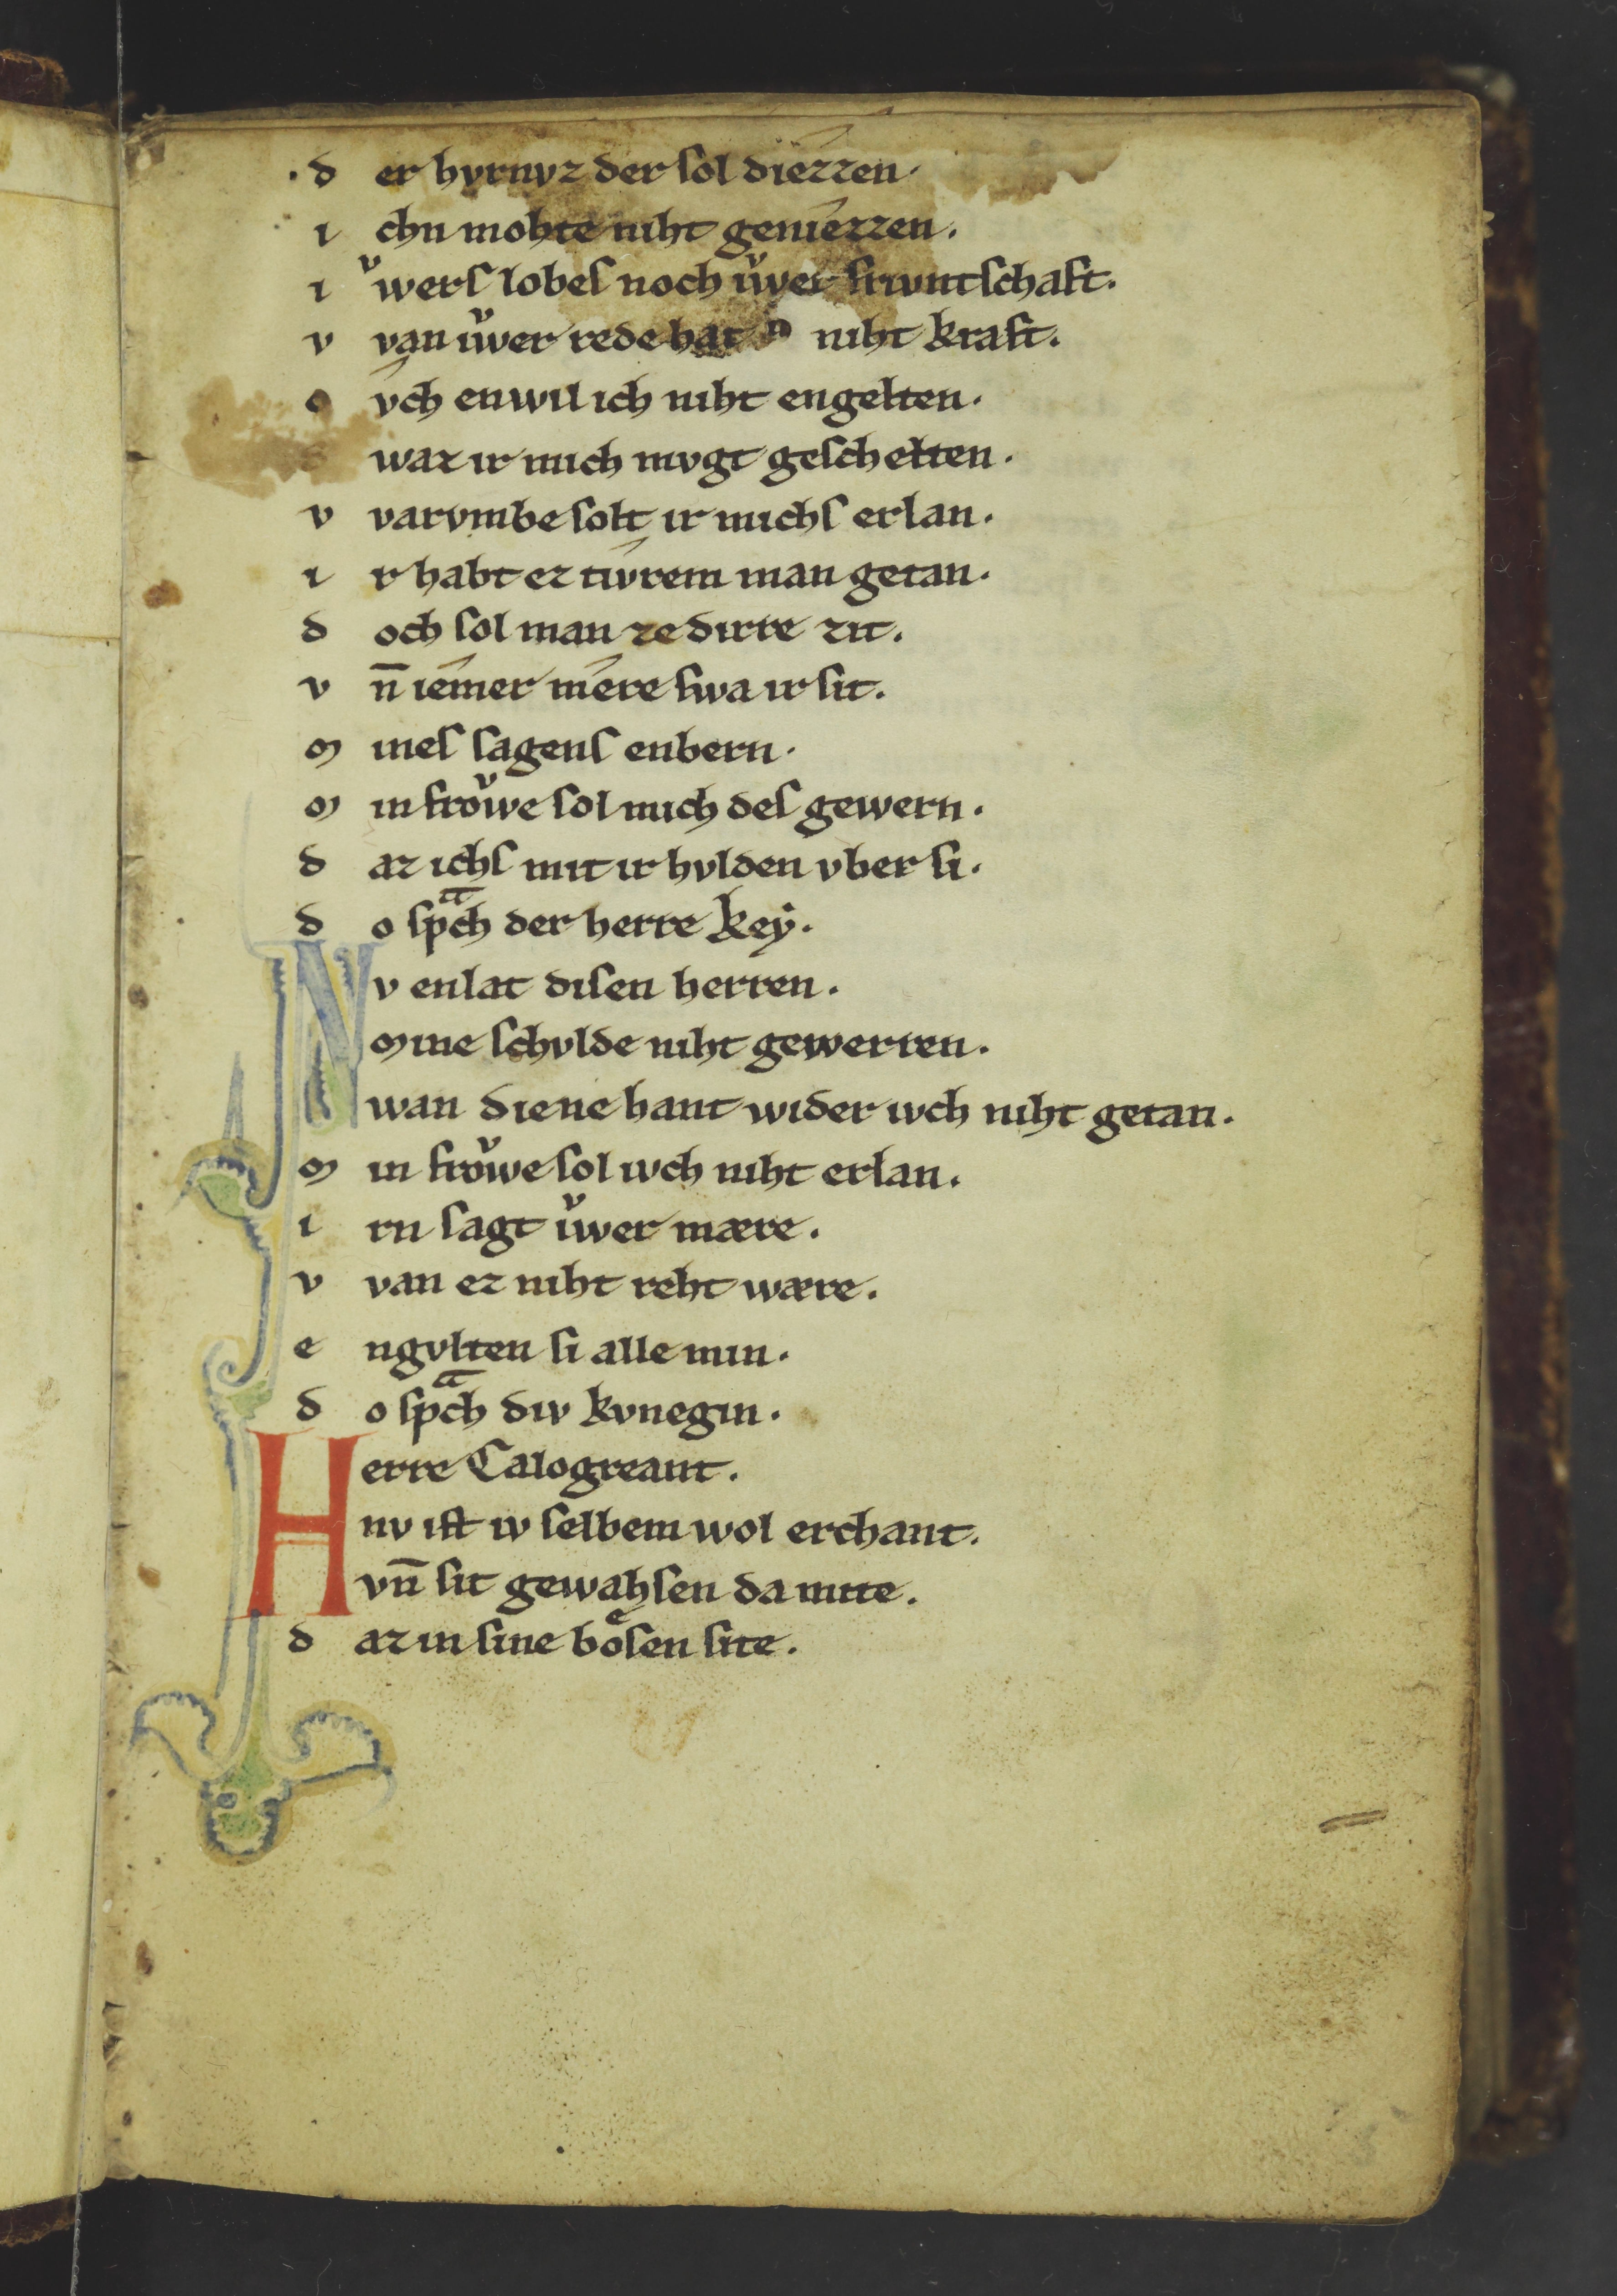 ·d er hvrnvz der ſol diezzen·
i chn mohte niht geniezzen.
i ůwerſ lobeſ noch iůwer friuntſchaft.
v van iůwer rede hat n niht kraft.
o vch enwil ich niht engelten.
waz ir mich mvgt geſchelten.
v varvmbe ſolt ir michſ erlan.
i r habt ez tiv́rem man getan.
d och ſol man ze dirre zit.
v n̄ iemer mere ſwa ir ſit.
m ineſ ſagenſ enbern.
m in froͮwe ſol mich deſ gewern.
d az ichſ mit ir hvlden vber ſi.
d o ſpᵃch der herre keẏ.
N v enlat diſen herren.
mine ſchvlde niht gewerren.
wan diene hant wider ivch niht getan.
m in froͮwe ſol ivch niht erlan.
i rn ſagt iůwer mære.
v van ez niht reht wære.
e ngvlten ſi alle min.
d o ſpᵃch div kvnegin.
H erre Calogreant.
nv iſt iv ſelbem wol erchant.
vn̄ ſit gewahſen da mite.
d az in ſine boͤſen ſite.